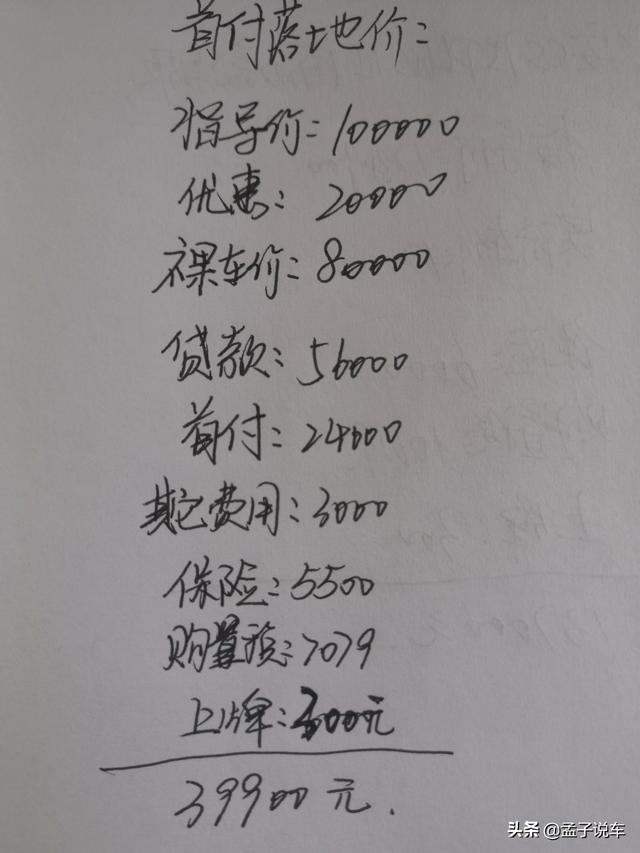 首付落地价:
指导价:100000
优惠:20000
裸车价:80000
贷款:56000
首付:24000
其它费用:3000
保险:5500
购置税:7079
上牌:300元
39900元.
头条 @孟子说车